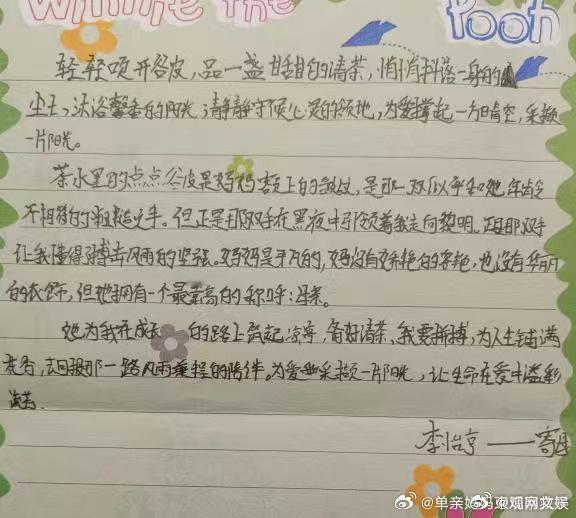 Winnie the
Pooh
轻轻颂开谷皮，品一盏甜甜的清茶，悄悄抖落一身的
尘土，沐浴馨香的阳光，静静守候心灵的领地，为爱撑起一方晴空，采撷
一片阳光。
茶水里的点点谷皮是妈妈鬓上的皱纹，是那一双似乎和她年龄
不相符的粗糙之手。但正是那双手在黑夜中引领着我走向黎明。是那双手
让我懂得搏击风雨的坚强。妈妈是平凡的，妈没有娇艳的容艳，也没有华丽
的衣饰，但她拥有一个最崇高的称呼：母亲。
她为我在成长的路上筑起凉亭，备好清茶、我要拼搏，为人生铺满
花香，去回报那一路风雨兼程的陪伴。为爱采撷一片阳光，让生命在爱中溢彩
李怡亨——寄母
@单亲妈妈
观网文娱